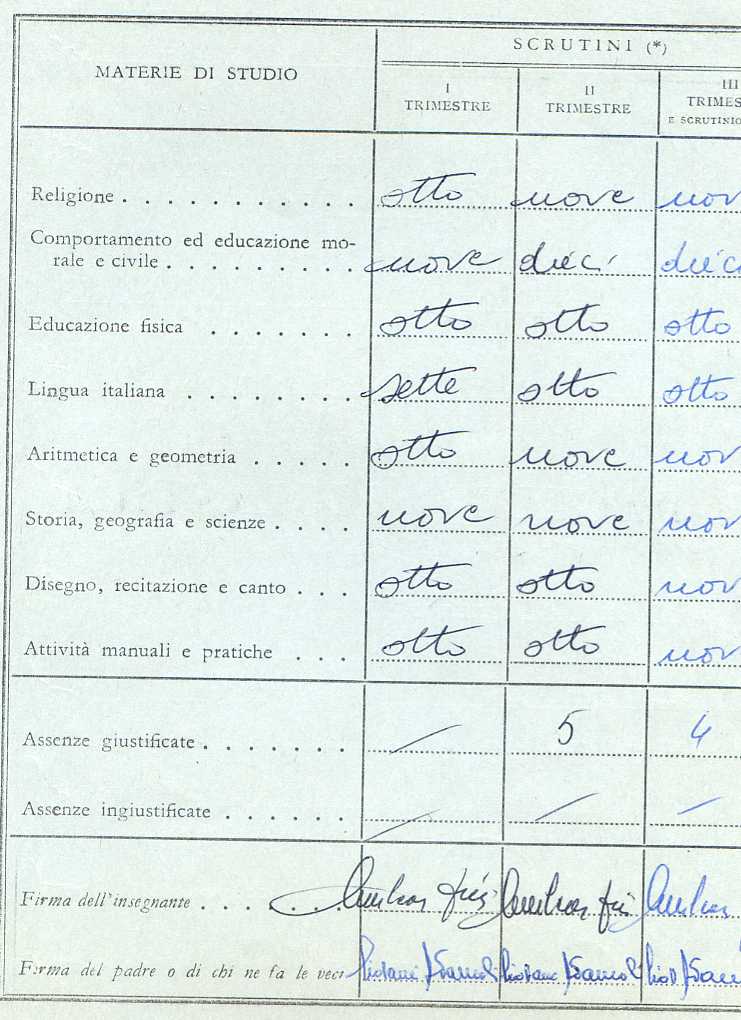 MATERIE DI STUDIO
SCRUTINI (*)
I TRIMESTRE
II TRIMESTRE
III TRIMES
E SCRUTINIO
Religione . . . . . . . . . . . otto nove nov
Comportamento ed educazione mo-
rale e civile . . . . . . . . . nove dieci dieci
Educazione fisica . . . . . . . otto otto otto
Lingua italiana . . . . . . . . sette otto otto
Aritmetica e geometria . . . . . otto nove nov
Storia, geografia e scienze . . . . nove nove nov
Disegno, recitazione e canto . . . otto otto nov
Attività manuali e pratiche . . . otto otto nov
Assenze giustificate . . . . . . . / 5 4
Assenze ingiustificate . . . . . . / / /
Firma dell'insegnante . . . . . . .
Firma del padre o di chi ne fa le veci